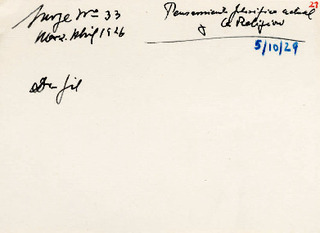 Nº 33
Marz. Abril 1926
Pensamiento filosófico actual
y
la Religión
27
5/10/29
Gil